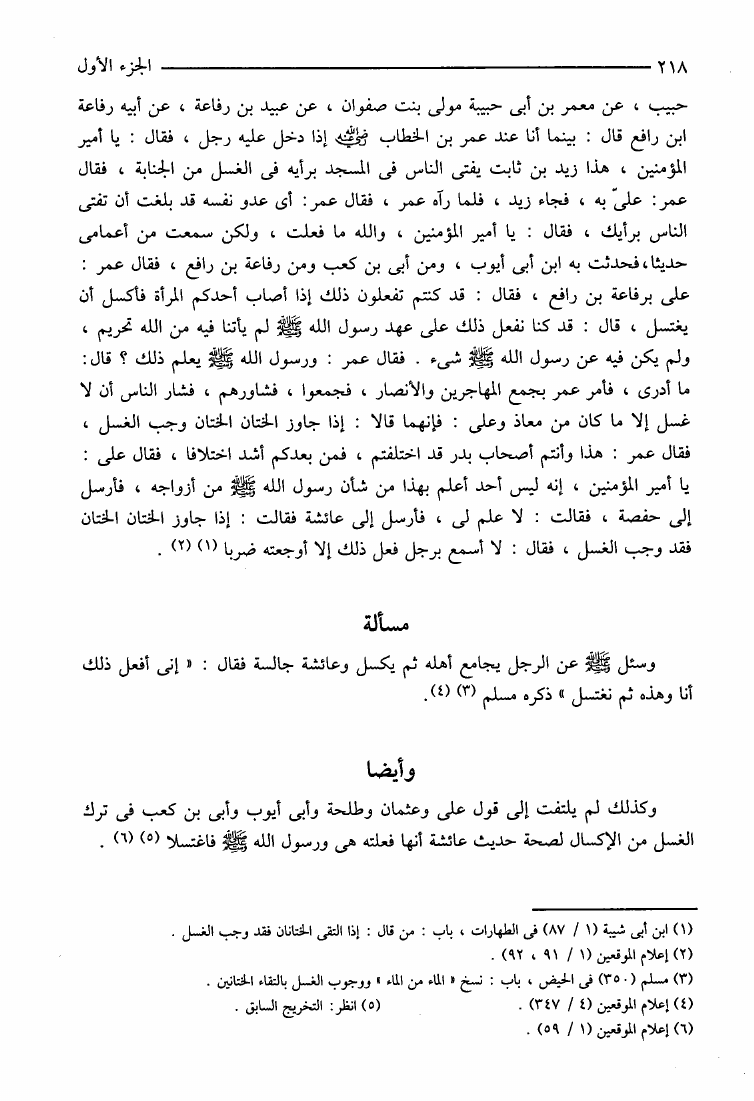 ٢١٨ ــــــــــــــــــــــــــــــــــــــــــــــــــــــ الجزء الأول
حبيب ، عن معمر بن أبى حبيبة مولى بنت صفوان ، عن عبيد بن رفاعة ، عن أبيه رفاعة
ابن رافع قال : بينما أنا عند عمر بن الخطاب رضي الله عنه إذا دخل عليه رجل ، فقال : يا أمير
المؤمنين ، هذا زيد بن ثابت يفتى الناس فى المسجد برأيه فى الغسل من الجنابة ، فقال
عمر: علىّ به ، فجاء زيد ، فلما رآه عمر ، فقال عمر: أى عدو نفسه قد بلغت أن تفتى
الناس برأيك ، فقال : يا أمير المؤمنين ، والله ما فعلت ، ولكن سمعت من أعمامى
حديثا،فحدثت به ابن أبى أيوب ، ومن أبى بن كعب ومن رفاعة بن رافع ، فقال عمر :
على برفاعة بن رافع ، فقال : قد كنتم تفعلون ذلك إذا أصاب أحدكم المرأة فأكسل أن
يغتسل ، قال : قد كنا نفعل ذلك على عهد رسول الله ﷺ لم يأتنا فيه من الله تحريم ،
ولم يكن فيه عن رسول الله ﷺ شىء . فقال عمر : ورسول الله ﷺ يعلم ذلك ؟ قال:
ما أدرى ، فأمر عمر بجمع المهاجرين والأنصار ، فجمعوا ، فشاورهم ، فشار الناس أن لا
غسل إلا ما كان من معاذ وعلى : فإنهما قالا : إذا جاوز الختان الختان وجب الغسل ،
فقال عمر : هذا وأنتم أصحاب بدر قد اختلفتم ، فمن بعدكم أشد اختلافا ، فقال على :
يا أمير المؤمنين ، إنه ليس أحد أعلم بهذا من شأن رسول الله ﷺ من أزواجه ، فأرسل
إلى حفصة ، فقالت : لا علم لى ، فأرسل إلى عائشة فقالت : إذا جاوز الختان الختان
فقد وجب الغسل ، فقال : لا أسمع برجل فعل ذلك إلا أوجعته ضربا (١) (٢) .
مسألة
وسئل ﷺ عن الرجل يجامع أهله ثم يكسل وعائشة جالسة فقال : « إنى أفعل ذلك
أنا وهذه ثم نغتسل » ذكره مسلم (٣) (٤).
وأيضا
وكذلك لم يلتفت إلى قول على وعثمان وطلحة وأبى أيوب وأبى بن كعب فى ترك
الغسل من الإكسال لصحة حديث عائشة أنها فعلته هى ورسول الله ﷺ فاغتسلا (٥) (٦) .
(١) ابن أبى شيبة (١ / ٨٧) فى الطهارات ، باب : من قال : إذا التقى الختانان فقد وجب الغسل .
(٢) إعلام الموقعين (١ / ٩١ ، ٩٢) .
(٣) مسلم (٣٥٠) فى الحيض ، باب : نسخ « الماء من الماء » ووجوب الغسل بالتقاء الختانين .
(٤) إعلام الموقعين (٤ / ٣٤٧) . (٥) انظر: التخريج السابق .
(٦) إعلام الموقعين (١ / ٥٩) .